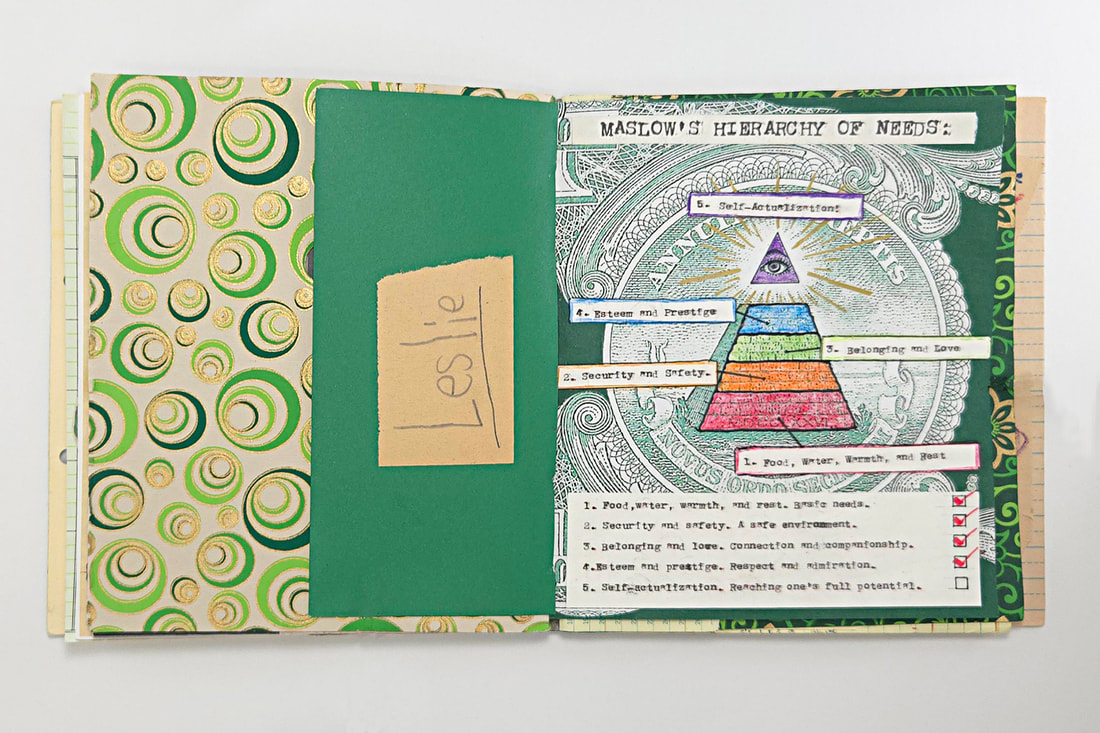 Leslie
MASLOW'S HIERARCHY OF NEEDS:
5. Self-Actualization!
ANNUIT CŒPTIS
4. Esteem and Prestige
3. Belonging and Love
2. Security and Safety.
1. Food, Water, Warmth, and Rest
NOVUS ORDO SECL
1. Food,water, warmth, and rest. Basic needs.
2. Security and safety. A safe environment.
3. Belonging and love. Connection and companionship.
4.Esteem and prestige. Respect and admiration.
5. Self-actualization. Reaching one's full potential.